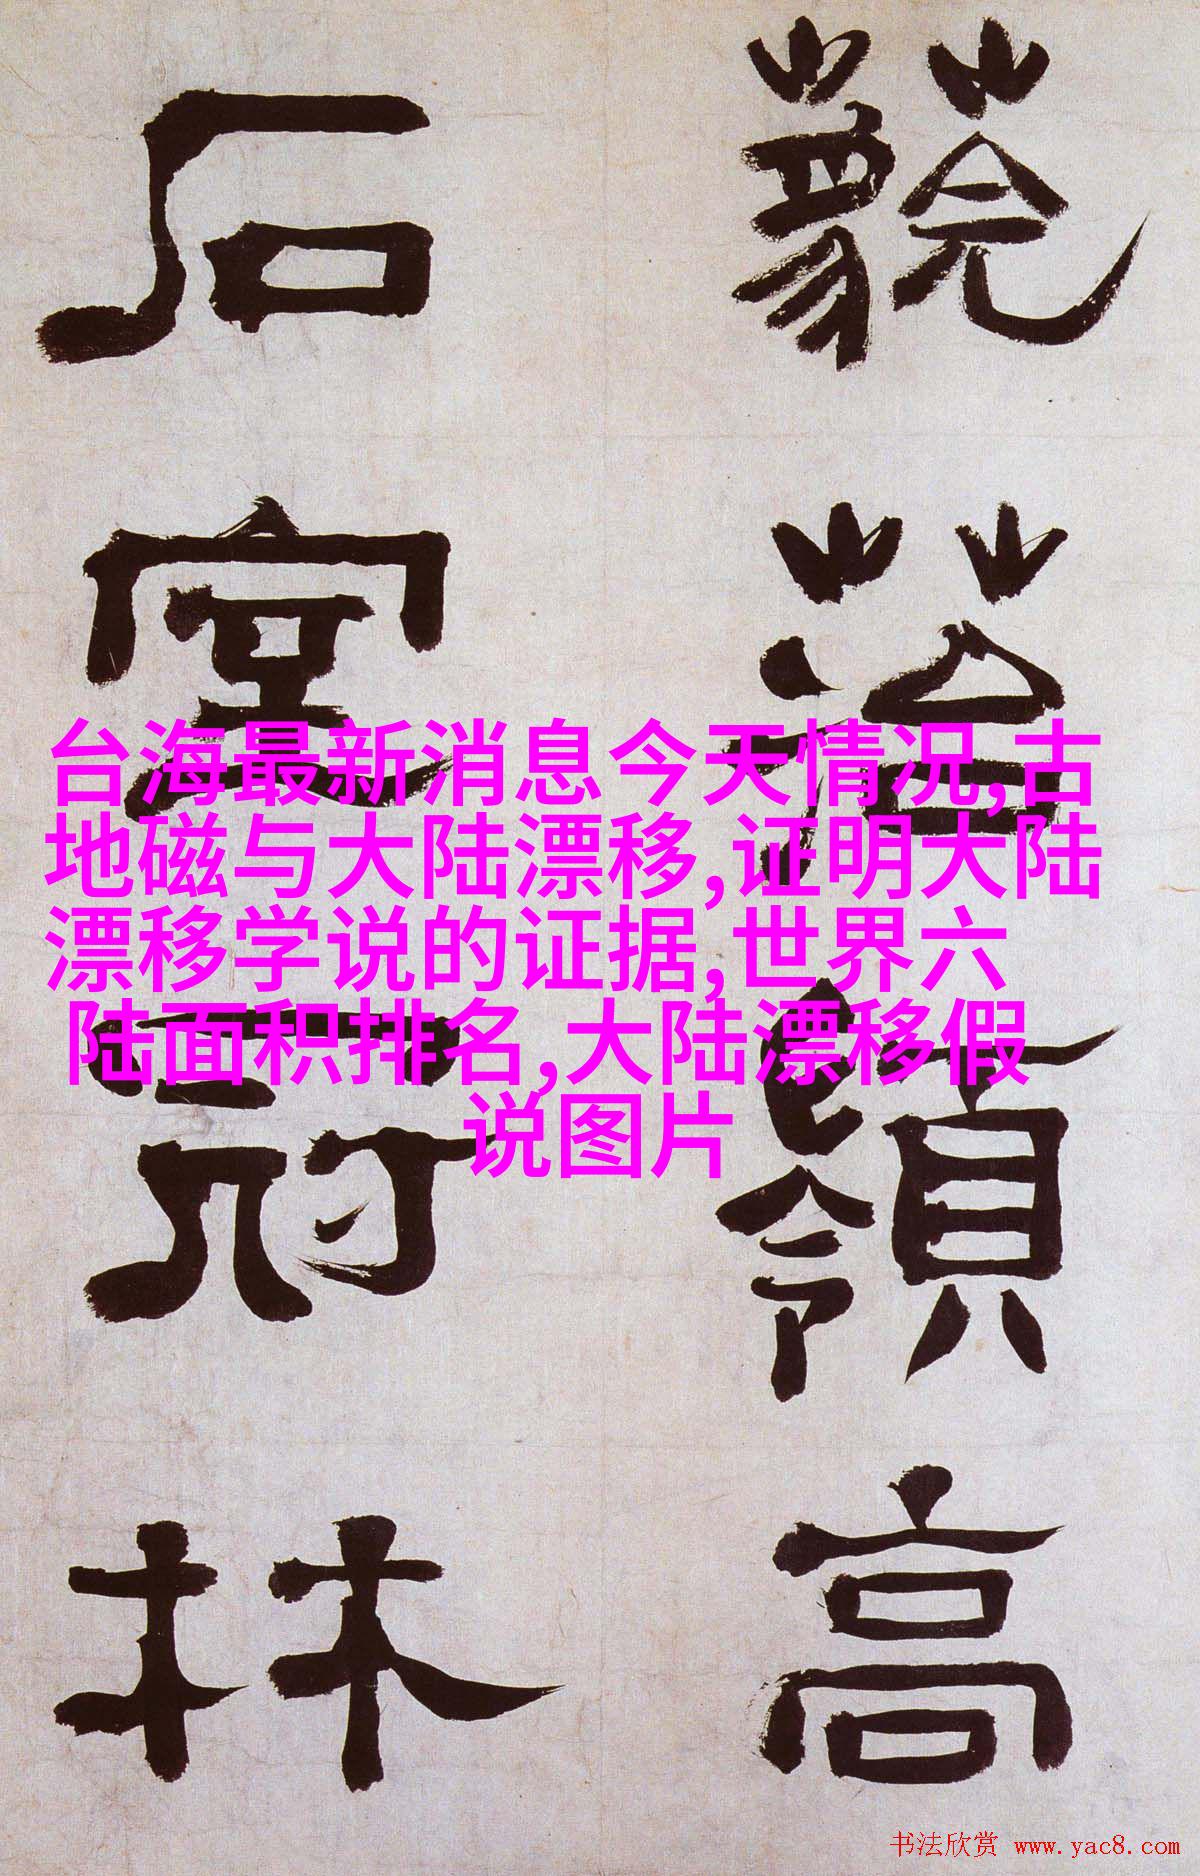 嶺
高
石
室
林
台海最新消息今天情况,古
地磁与大陆漂移,证明大陆
漂移学说的证据,世界六
陆面积排名,大陆漂移假
说图片
书法欣赏 www.yac8.com